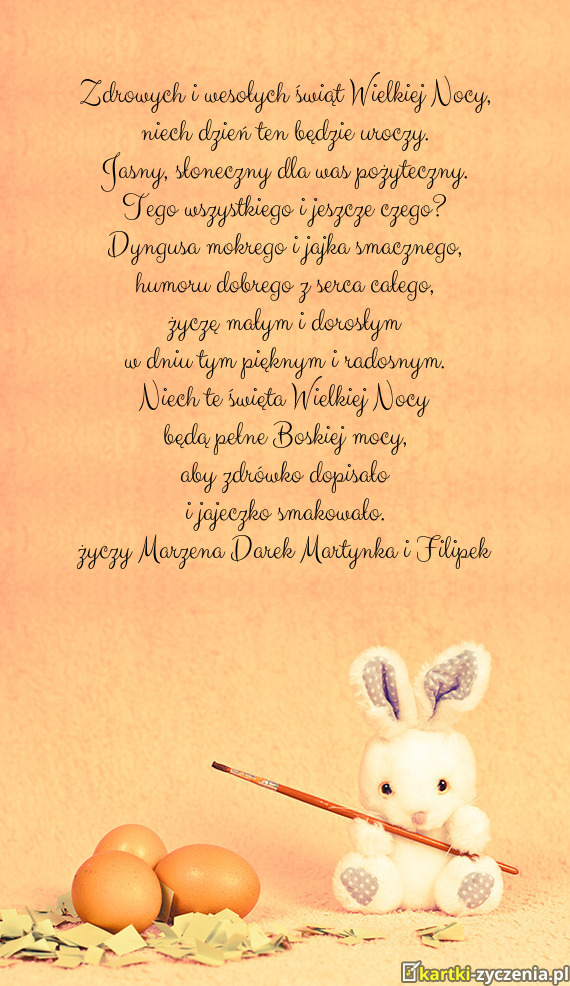 Zdrowych i wesołych świąt Wielkiej Nocy,
niech dzień ten będzie uroczy.
Jasny, słoneczny dla was pożyteczny.
Tego wszystkiego i jeszcze czego?
Dyngusa mokrego i jajka smacznego,
humoru dobrego z serca całego,
życzę małym i dorosłym
w dniu tym pięknym i radosnym.
Niech te święta Wielkiej Nocy
będą pełne Boskiej mocy,
aby zdrówko dopisało
i jajeczko smakowało.
życzy Marzena Darek Martynka i Filipek
kartki-zyczenia.pl